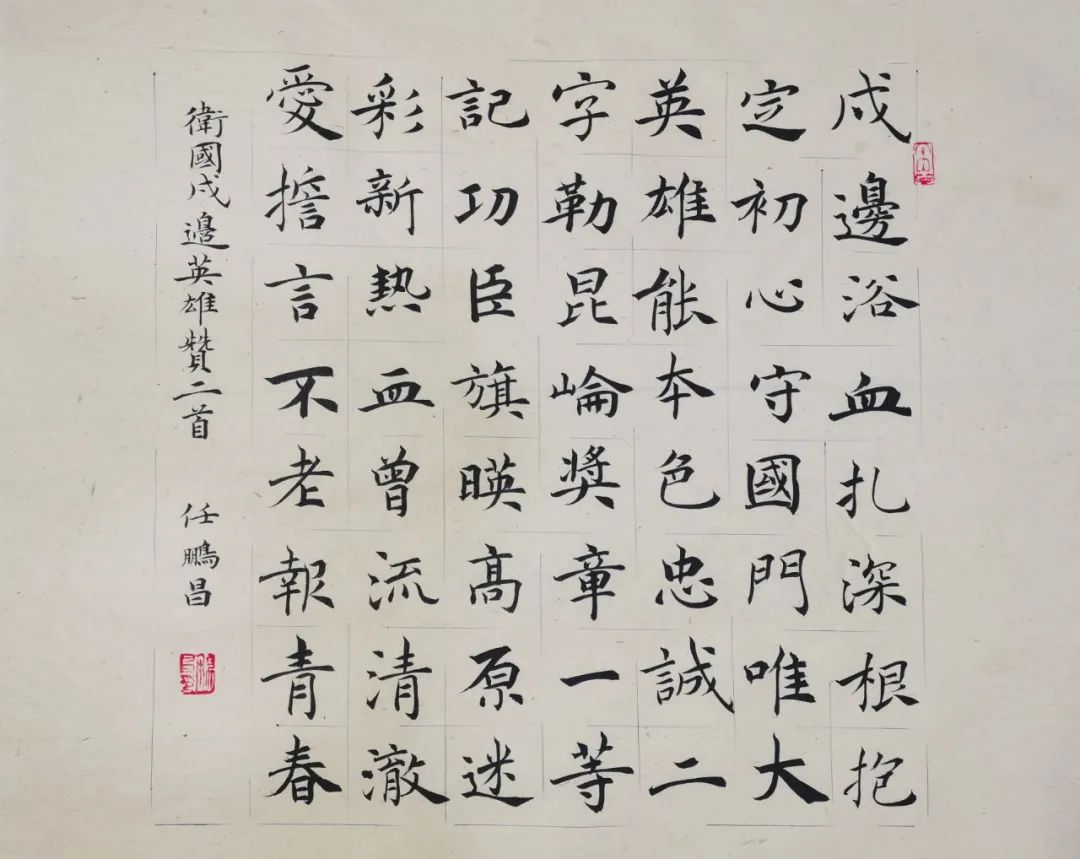 戍邊浴血扎深根抱
定初心守國門唯大
英雄能本色忠誠二
字勒昆崘獎章一等
記功臣旗暎高原迷
彩新熱血曾流清澈
愛擔言不老報青春
衛國戍邊英雄贊二首
任鵬昌